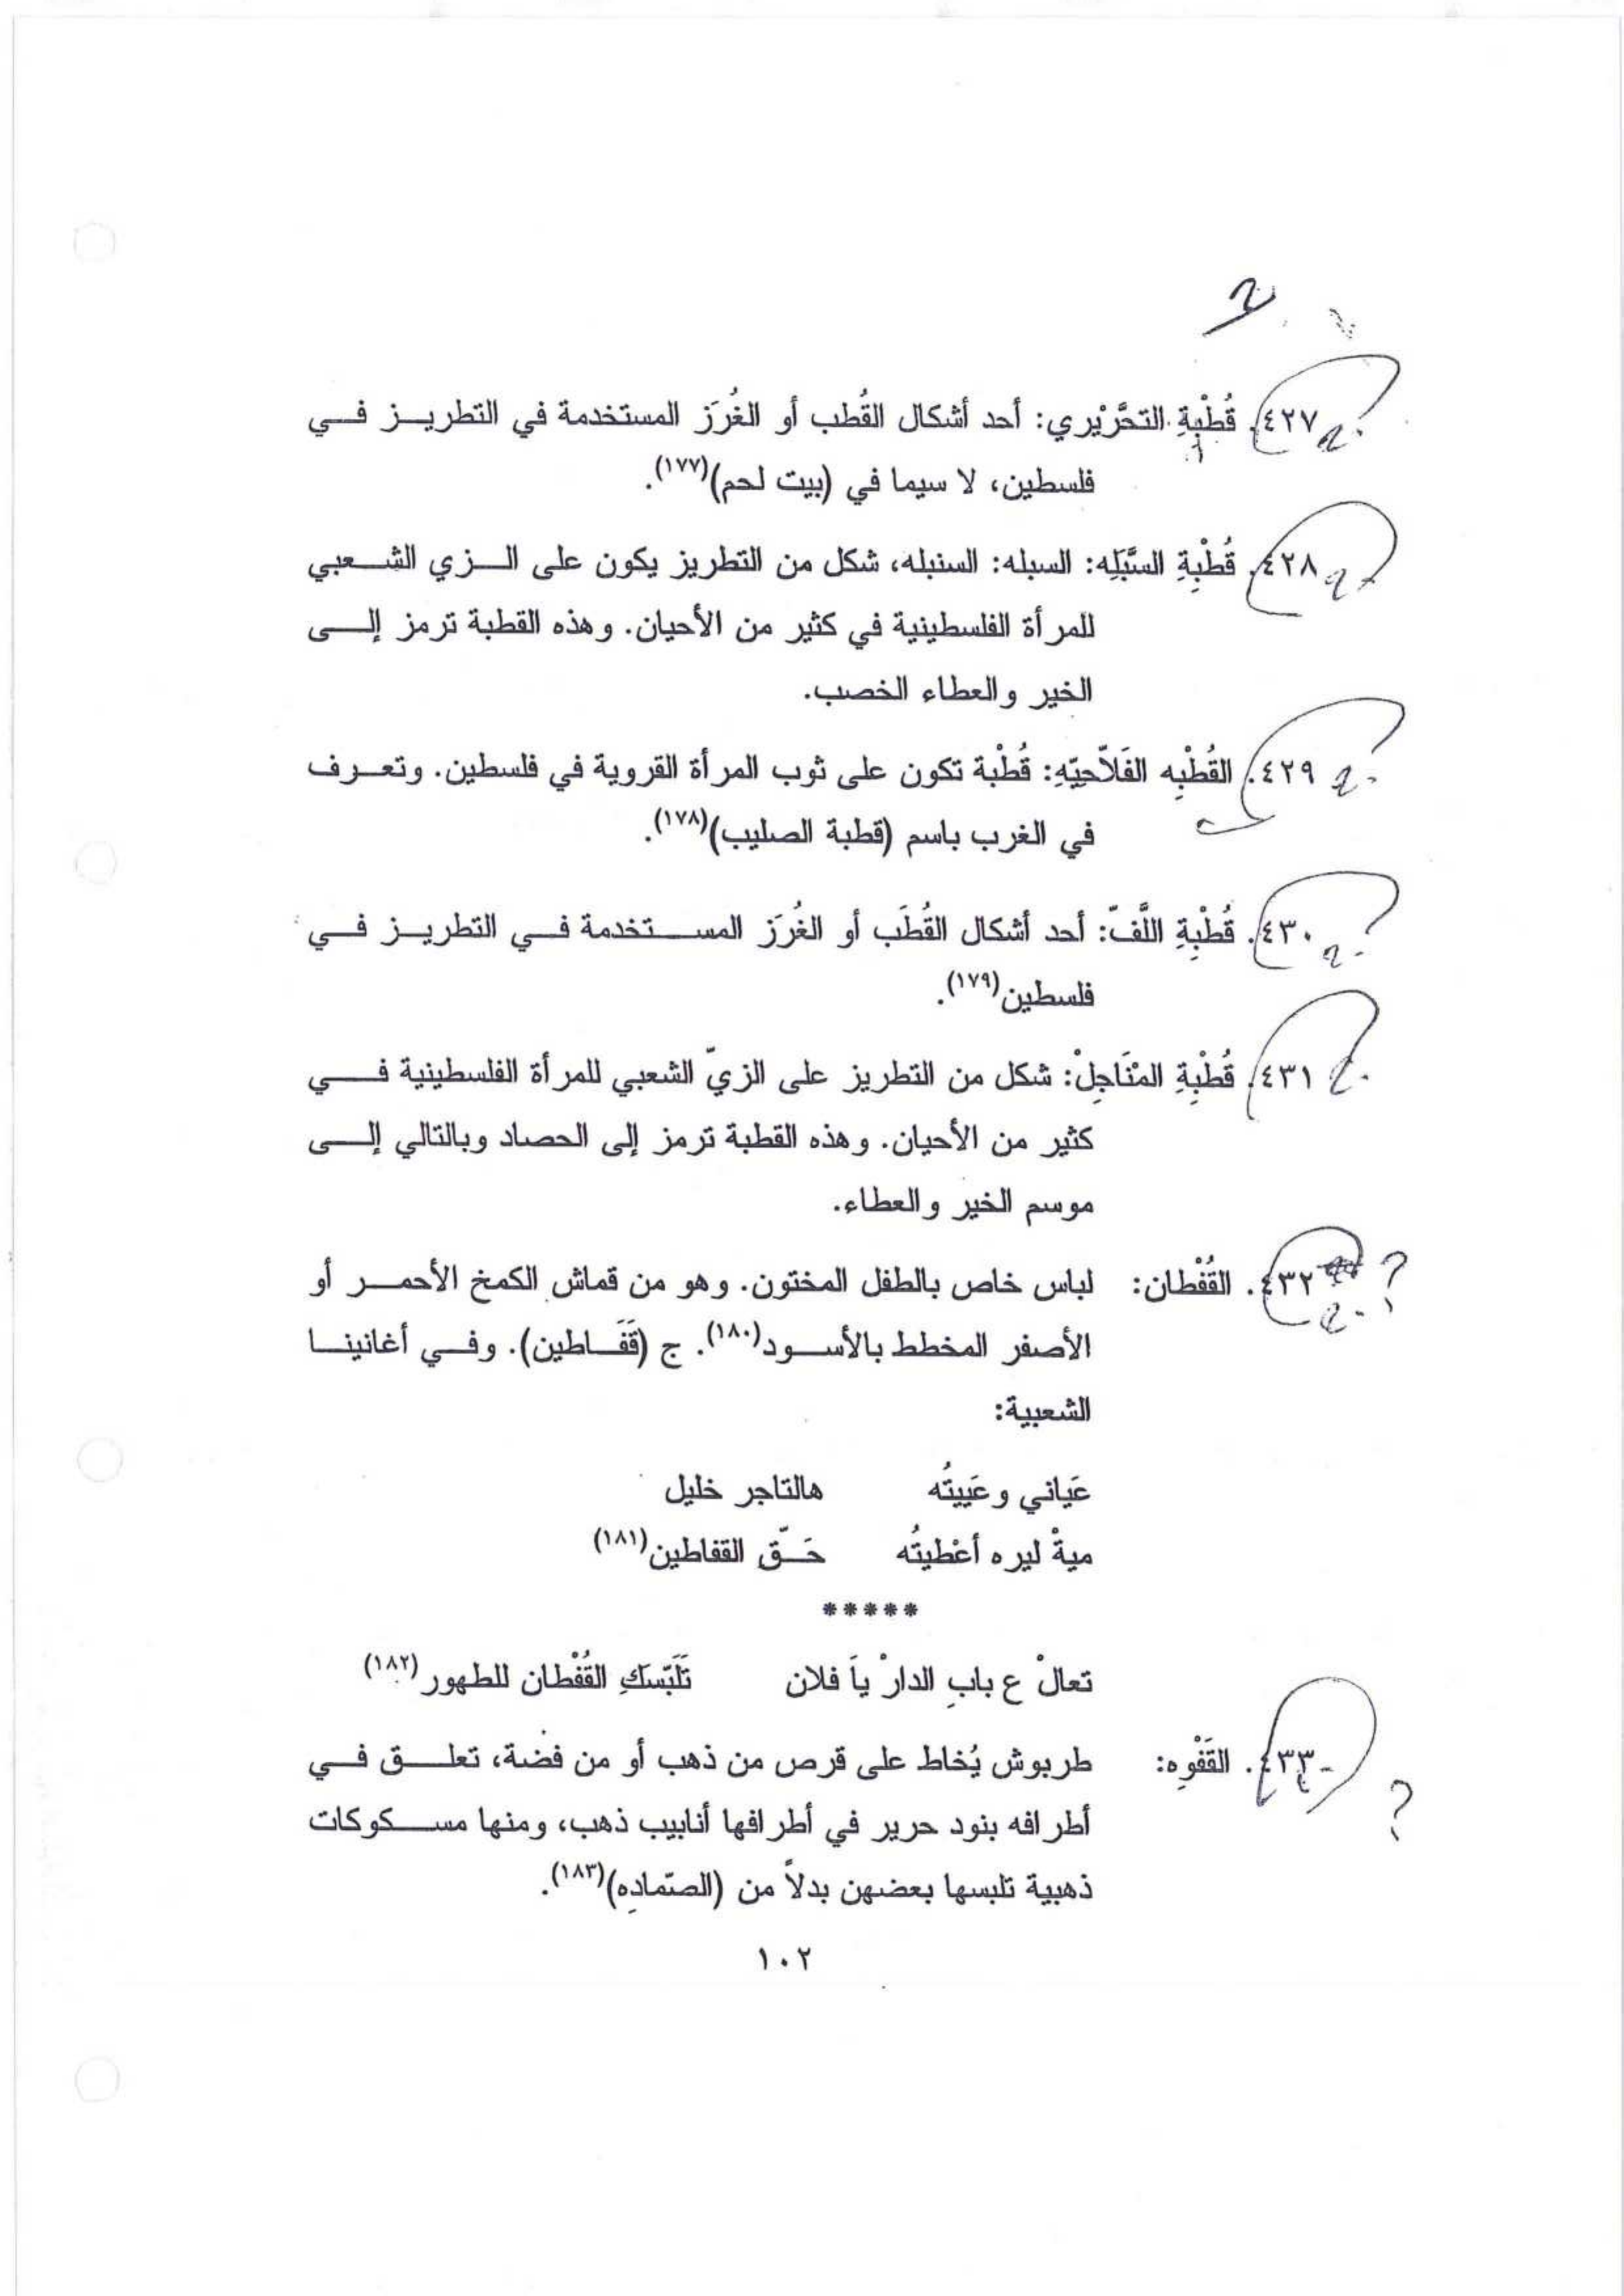 ٤٢٧. قُطْبِةِ التحَّرْيْري: أحد أشكال القُطب أو الغُرَز المستخدمة في التطريز في
فلسطين، لا سيما في (بيت لحم)(١٧٧).
٤٢٨. قُطْبِةِ السَّبَلِه: السبله: السنبله، شكل من التطريز يكون على الزي الشعبي
للمرأة الفلسطينية في كثير من الأحيان. وهذه القطبة ترمز إلى
الخير والعطاء الخصب.
٤٢٩. القُطْبِه الفَلاّحيّهِ: قُطْبة تكون على ثوب المرأة القروية في فلسطين. وتعرف
في الغرب باسم (قطبة الصليب)(١٧٨).
٤٣٠. قُطْبِةِ اللَّفّ: أحد أشكال القُطَب أو الغُرَز المستخدمة في التطريز في
فلسطين(١٧٩).
٤٣١. قُطْبِةِ المْنَاجِلْ: شكل من التطريز على الزيّ الشعبي للمرأة الفلسطينية في
كثير من الأحيان. وهذه القطبة ترمز إلى الحصاد وبالتالي إلى
موسم الخير والعطاء.
٤٣٢. القُفْطان: لباس خاص بالطفل المختون. وهو من قماش الكمخ الأحمر أو
الأصفر المخطط بالأسود(١٨٠). ج (قَفَاطين). وفي أغانينا
الشعبية:
عَياني وعَييتُه هالتاجر خليل
ميةْ ليره أعْطيتُه حَقّ القفاطين(١٨١)
*****
تعالْ ع بابِ الدارْ ياَ فلان تَلَبّسكِ القُفْطان للطهور(١٨٢)
٤٣٣. القَفْوِه: طربوش يُخاط على قرص من ذهب أو من فضة، تعلق في
أطرافه بنود حرير في أطرافها أنابيب ذهب، ومنها مسكوكات
ذهبية تلبسها بعضهن بدلاً من (الصّمادِه)(١٨٣).
١٠٢